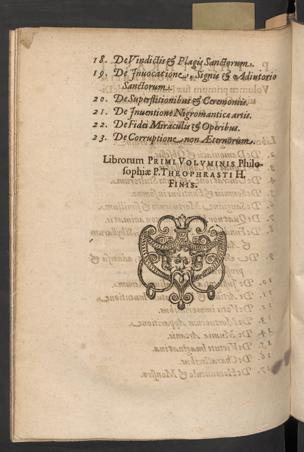 18. De Vindictis & Plagis Sanctorum.
19. De Invocatione, Signis & Adiutorio
Sanctorum.
20. De Superstitionibus & Ceremoniis.
21. De Inventione Nigromanticæ artis.
22. De Fidei Miraculis & Operibus.
23. De Corruptione non Æternorum.
Librorum PRIMI VOLVMINIS Philo-
sophiæ P. THEOPHRASTI H.
FINIS.